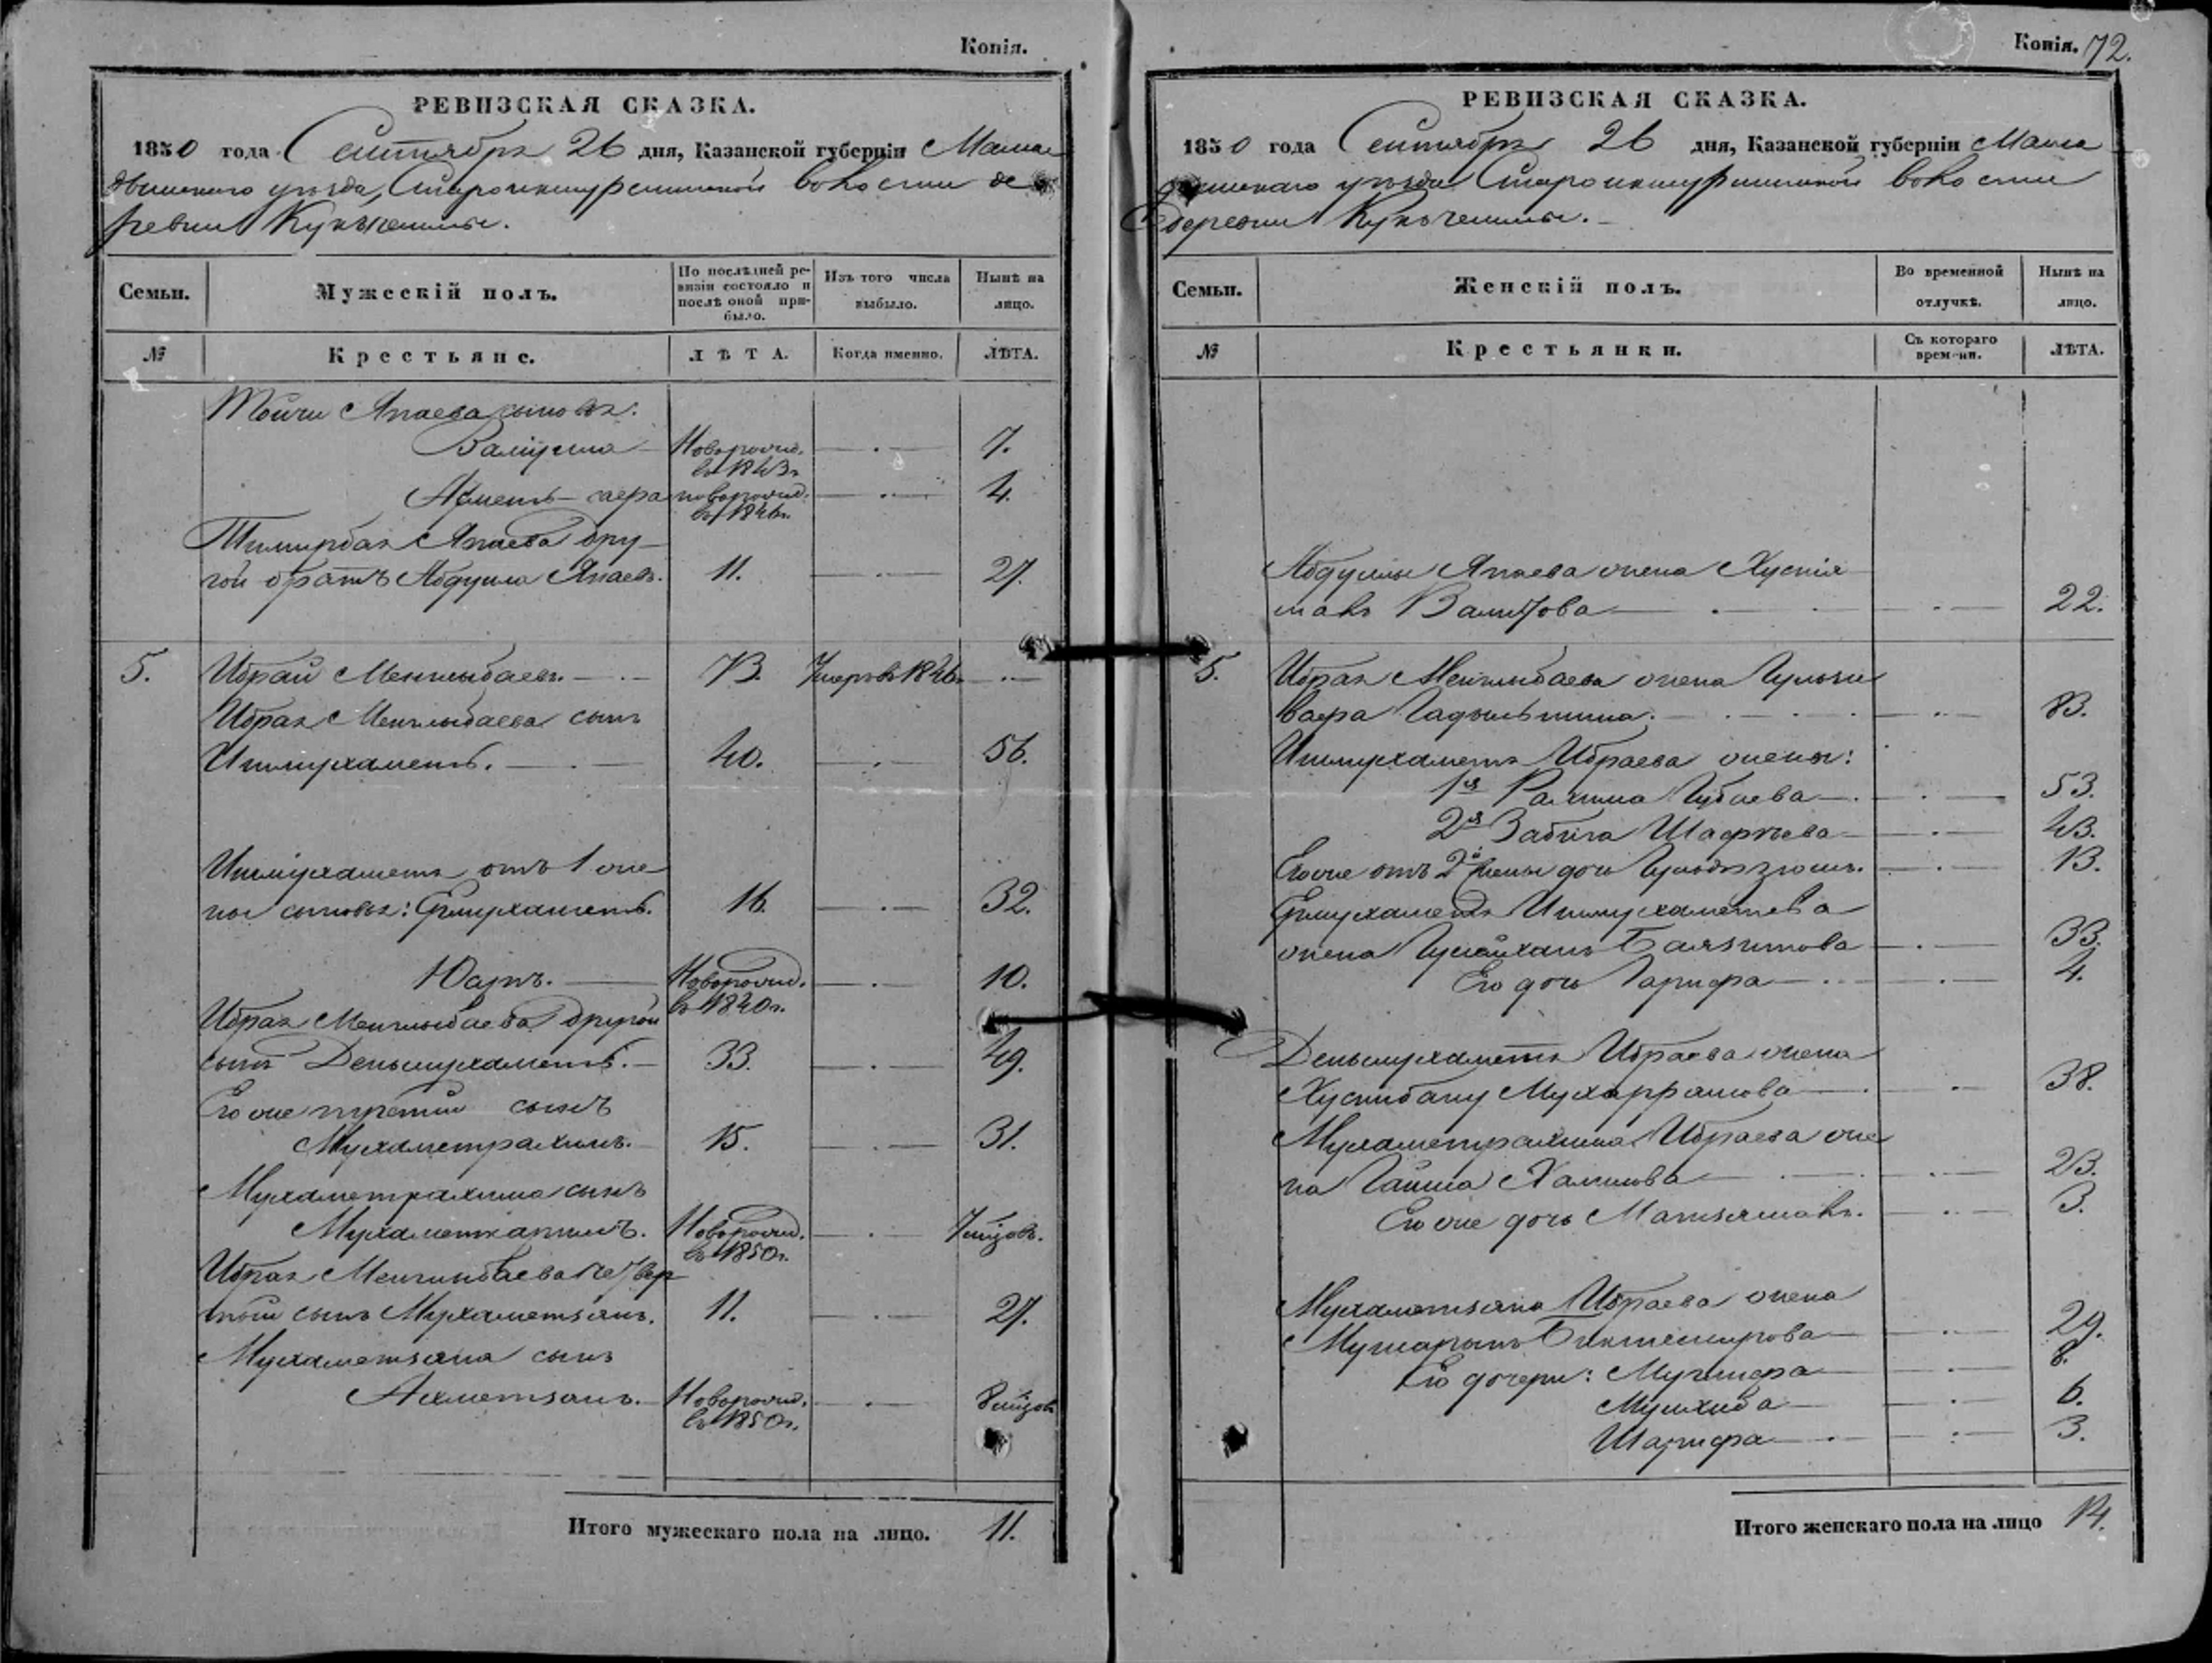 Копія.
РЕВИЗСКАЯ СКАЗКА.
1850 года Сентября 26 дня, Казанской губерніи Мама
дышскаго уѣзда, волости де
ревни
Семьи.
Мужескій полъ.
По послѣдней ре-
визіи состояло и
послѣ оной при-
было.
Изъ того числа
выбыло.
Нынѣ на
лицо.
№
Крестьяне.
ЛѢТА.
Когда именно.
ЛѢТА.
Япаева сыновья:
Валіулла Новорожд. въ 1843г. 7.
Ахметъ-сафа новорожд. въ 1846г. 4.
Тимирбая Япаева дру-
гой братъ Абдулла Япаевъ. 11. 27.
5. Ибрай Менглыбаевъ. 73. Умеръ въ 1846г.
Ибрая Менглыбаева сынъ
Ишмухаметъ. 40. 56.
Ишмухаметя отъ 1 же
ны сыновья: Ермухаметъ. 16. 32.
Новорожд. въ 1840г. 10.
Ибрая Менглыбаева другой
сынъ Деньмухаметъ. 33. 49.
Его же третій сынъ
Мухаметрахимъ. 15. 31.
Мухаметрахима сынъ
Мухаметкаримъ. Новорожд. въ 1850г.
Ибрая Менглыбаева четвер
тый сынъ Мухаметзянъ. 11. 27.
Мухаметзяна сынъ
Ахметзянъ. Новорожд. въ 1850г.
Итого мужескаго пола на лицо. 11.
Копія. 72.
РЕВИЗСКАЯ СКАЗКА.
1850 года Сентября 26 дня, Казанской губерніи Мама
дышскаго уѣзда волости
деревни
Семьи.
Женскій полъ.
Во временной
отлучкѣ.
Нынѣ на
лицо.
№
Крестьянки.
Съ котораго
времени.
ЛѢТА.
Абдуллы Япаева жена Хуснія
малъ Валитова 22.
5. Ибрая Менглыбаева жена
83.
Ишмухаметя Ибраева жены:
1я Рахима Губаева 53.
2я Забига 43.
Его же отъ 2й жены дочь 13.
Ермухаметя Ишмухаметева
жена Баязитова 33.
Его дочь Гарифа 4.
Деньмухаметя Ибраева жена
Хуснибану Мухаррамова 38.
Мухаметрахима Ибраева же
на Гайша Халилова 23.
Его же дочь 3.
Мухаметзяна Ибраева жена
Биктемирова 29.
Его дочери: 8.
6.
Шарифа 3.
Итого женскаго пола на лицо 14.